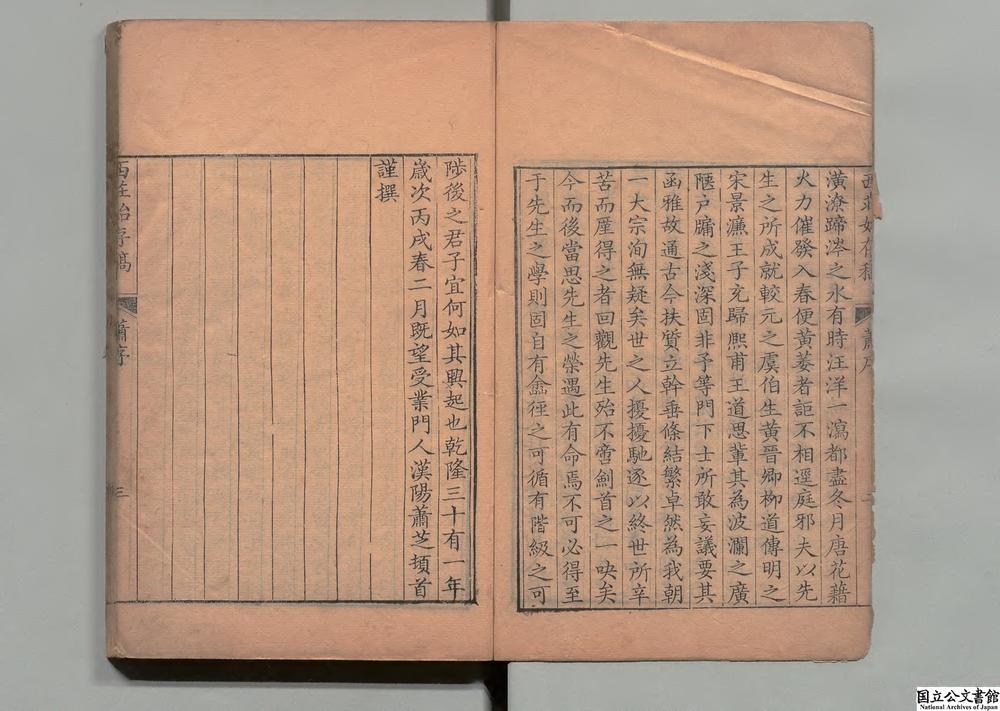 西莊始存稿 蕭序
潢潦蹄涔之水有時汪洋一瀉都盡冬月唐花藉
火力催發入春便黃萎者詎不相逕庭邪夫以先
生之所成就較元之虞伯生黃晉卿柳道傳明之
宋景濂王子充歸熙甫王道思輩其為波瀾之廣
陿戶牖之淺深固非予等門下士所敢妄議要其
函雅故通古今扶質立幹垂條結繁卓然為我朝
一大宗洵無疑矣世之人擾擾馳逐以終世所辛
苦而厪得之者回觀先生殆不啻劍首之一吷矣
今而後當思先生之榮遇此有命焉不可必得至
于先生之學則固自有龠徑之可循有階級之可
陟後之君子宜何如其興起也乾隆三十有一年
歲次丙戌春二月既望受業門人漢陽蕭芝頓首
謹撰
西莊始存稿 蕭序 三
国立公文書館
National Archives of Japan